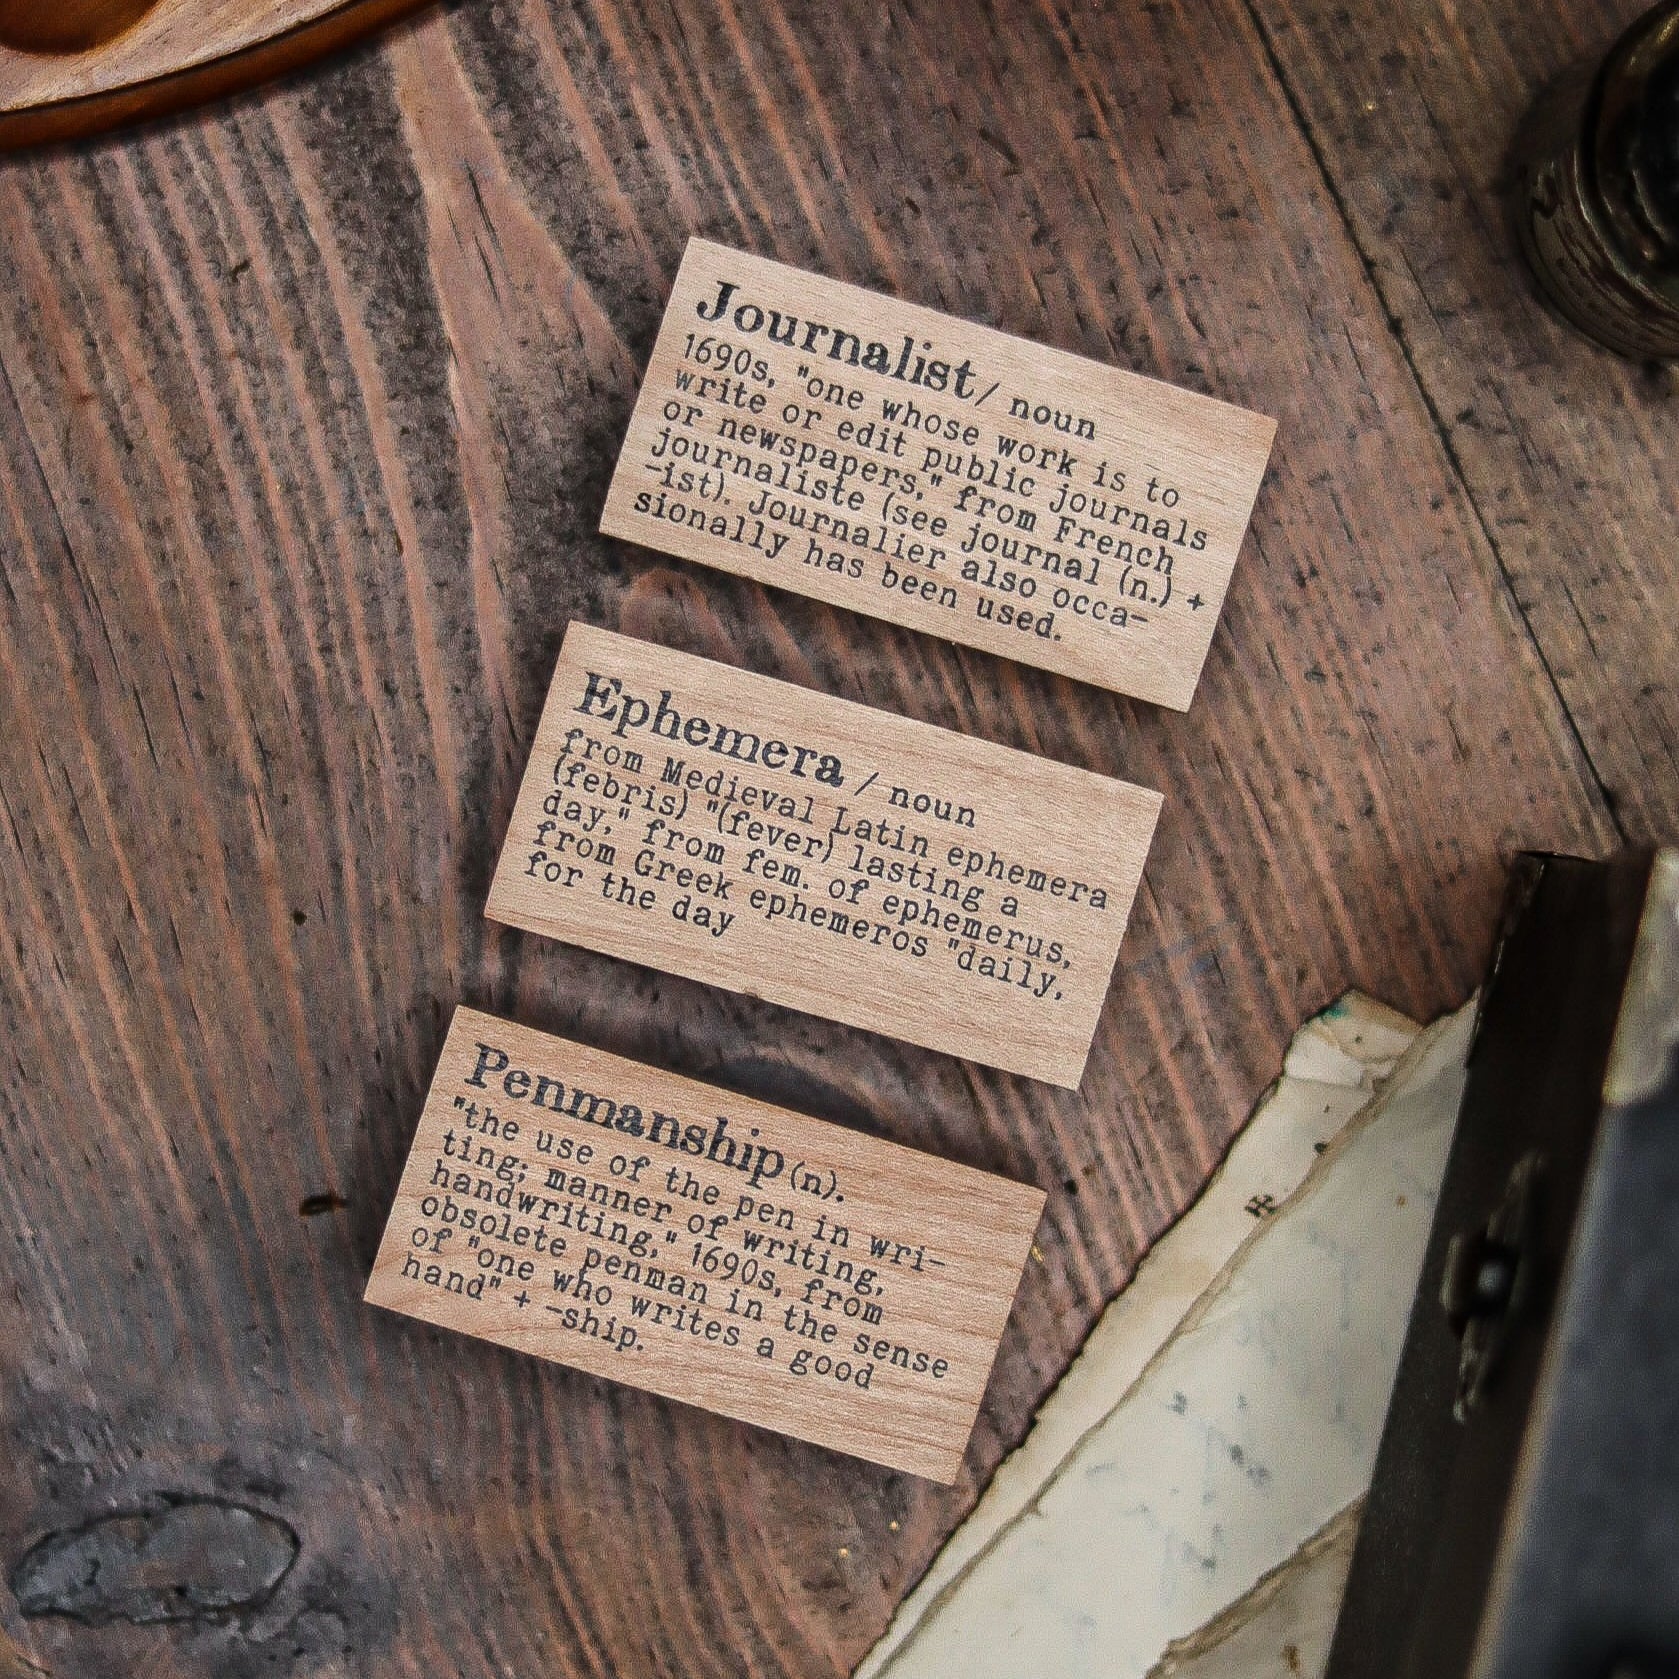 Journalist/ noun
1690s, "one whose work is to
write or edit public journals
or newspapers," from French
journaliste (see journal (n.) +
-ist). Journalier also occa-
sionally has been used.
Ephemera / noun
from Medieval Latin ephemera
(febris) "(fever) lasting a
day," from fem. of ephemerus,
from Greek ephemeros "daily,
for the day
Penmanship (n).
"the use of the pen in wri-
ting; manner of writing,
handwriting," 1690s, from
obsolete penman in the sense
of "one who writes a good
hand" + -ship.